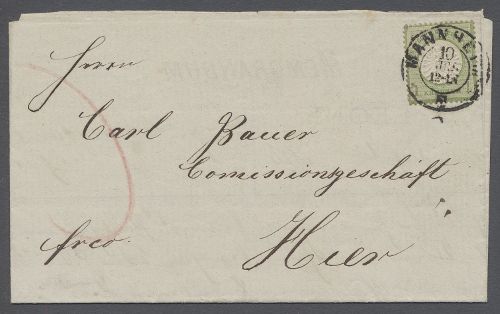 MANNHEIM
10
Herrn
Carl Bauer
Comissionsgeschäft
frco. Hier